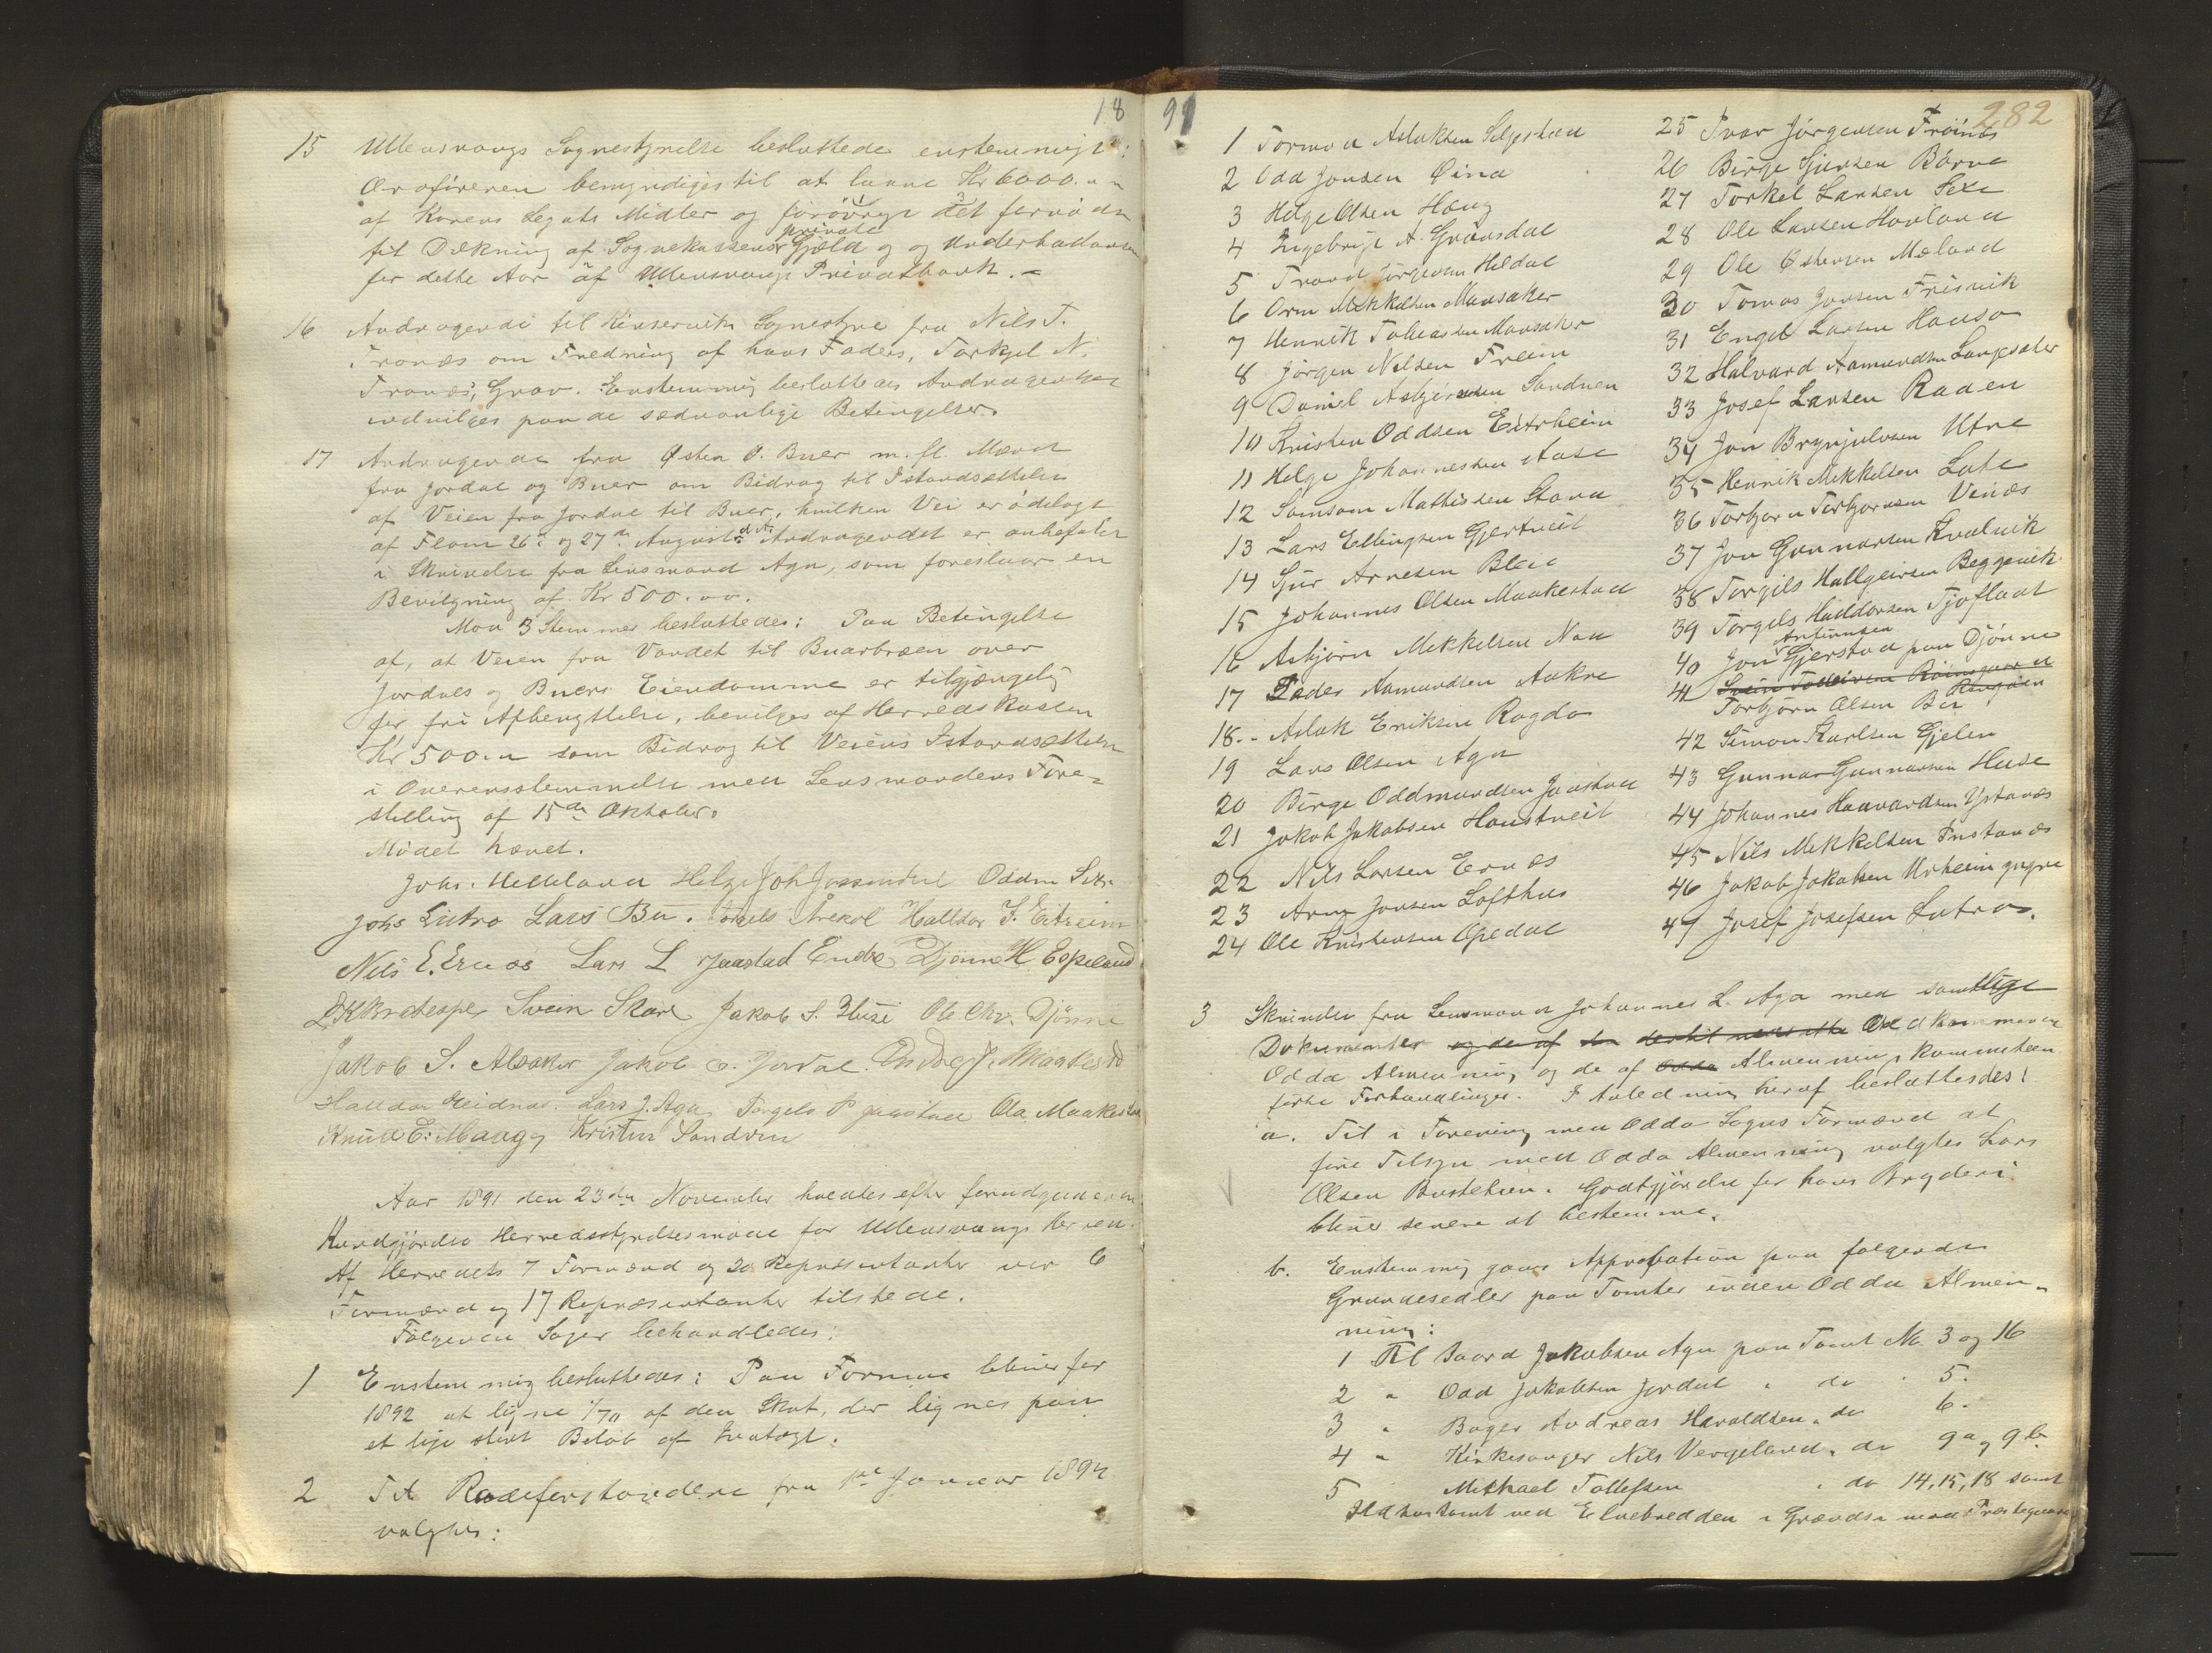 18
15 Ullensvangs Sognestyrelse besluttede enstemmigt:
Ordføreren bemyndiges til at laane Kr 6000.
af Korens Legats Midler og forøvrigt det fornødne
private
til Dækning af Sognekassens Gjeld og Underbalance
for dette Aar af Ullensvangs Privatbank. –
16 Andragende til Kinserviks Sognestyre fra Nils T.
Tronæs om Fredning af hans Faders, Torkjel N.
Tronæs, Grav. Enstemmig besluttedes Andragendet
indvilges paa de sædvanlige Betingelser.
17 Andragende fra Østen O. Buer m. fl. Mænd
fra Jordal og Buer om Bidrag til Istandsættelse
af Veien fra Jordal til Buer, hvilken Vei er ødelagt
af Flom 26de og 27de August d. A. Andragendet er anbefalet
i Skrivelse fra Lensmand Aga, som foreslaar en
Bevilgning af Kr 500.00.
Mod 3 Stemmer besluttedes: Paa Betingelse
af, at Veien fra Vandet til Buarbræen over
Jordals og Buers Eiendomme er tilgjængelig
for fri Afbenyttelse, bevilges af Herredskassen
Kr 500.00 som Bidrag til Veiens Istandsættelse
i Overensstemmelse med Lensmandens Fore=
stilling af 15de Oktober.
Mødet hævet.
Johs. Helleland Helge Joh Jaasendal Oddm
Johs Lutro Lars Bu. Torgils Årekol Halldor T. Eitreim
Nils E. Ernæs Lars L Jaastad Endre Djønne H Espeland
Svein Skare Jakob S. Huse Ole Chr. Djønne
Jakob S. Alsaker Jakob O. Jordal. Endre J. Maakestad
Halldor Eidnæs. Lars J. Aga Torgels P Jaastad Ola Maakestad
Knud E. Mauge Kristen Sandven
Aar 1891 den 23de November holdtes efter forudgaaende
Kundgjørelse Herredsstyrelsesmøde for Ullensvangs Herred.
Af Herredets 7 Formænd og 20 Repræsentanter var 6
Formænd og 17 Repræsentanter tilstede.
Følgende Sager behandledes:
1 Enstemmig besluttedes: Paa Formue bliver for
1892 at ligne 1/70 af den Skat, der lignes paa
et lige stort Beløb af Indtægt.
2 Til Rodeforstandere fra 1ste Januar 1892
valgtes:
91
282
1 Tormod Aslaksen Seljestad
2 Odd Jonsen Øina
3 Helge Olsen Haug
4 Ingebrigt A. Grønsdal
5 Trond Jørgensen Hildal
6 Orm Mikkelsen Mansaker
7 Henrik Tobiassen Mansaker
8 Jørgen Nilsen Freim
9 Daniel Asbjørnsen Sandven
10 Kristen Oddsen Eitrheim
11 Helge Johannessen Aase
12 Samson Mathissen Stana
13 Lars Ellingsen Gjertveit
14 Sjur Arnesen Bleie
15 Johannes Olsen Maakestad
16 Asbjørn Mikkelsen Naa
17 Peder Aamundsen Aakre
18.- Aslak Eriksen Ragde
19 Lars Olsen Aga
20 Børge Oddmundsen Jaastad
21 Jakob Jakobsen Haustveit
22 Nils Larsen Ernæs
23 Arne Jonsen Lofthus
24 Ole Kristensen Opedal
25 Ivar Jørgensen Frøinæs
26 Børge Sjursen Børve
27 Torkel Larsen Sexe
28 Ole Larsen Hovland
29 Ole Østensen Mæland
30 Tomas Jonsen Frisvik
31 Engel Larsen Hauso
32 Halvard Aamundsen Langesæter
33 Josef Larsen Raaen
34 Jon Brynjulvsen Utne
35 Henrik Mikkelsen Lote
36 Torbjørn Torbjørnsen Vinæs
37 Jon Gunnarsen Kvalvik
38 Torgils Hallgeirsen Beggevik
39 Torgels Halldorsen Tjoflaat
Anfinnsen
40 Jon Gjerstad paa Djønne
41 Svein Tolleivsen Røinegaard
Torbjørn Olsen Bu Ringøen
42 Simon Karlsen Gjelen
43 Gunnar Gunnarsen Huse
44 Johannes Haavardsen Ystanæs
45 Nils Mikkelsen Instanæs
46 Jakob Jakobsen Urheim yngre
47 Josef Josefsen Lutro.
3 Skrivelse fra Lensmand Johannes L. Aga med samtlige
Dokumenter og de af Vedkommende
Odda Almenning og de af Odda Almenningskommiteen
førte Forhandlinger. I Anledning heraf besluttedes:
a. Til i Forening med Odda Sogns Formænd at
føre Tilsyn med Odda Almenning valgtes Lars
Olsen Bustetun. Godtgjørelse for hans Bryderi
bliver senere at bestemme.
b. Enstemmig gaves Approbation paa følgende
Grundesedler paa Tomter inden Odda Almen-
ning:
1 Til Baard Jakobsen Aga paa Tomt No 3 og 16
2 " Odd Jakobsen Jordal " do " 5.
3 " Bager Andreas Haraldsen " do 6.
4 " Kirkesanger Nils Vergeland " do 9a og 9b
5 Michael Tollefsen " do 14, 15, 18 samt
Ildhustomt ved Elvebredden i Grændse mod Præstegaarden